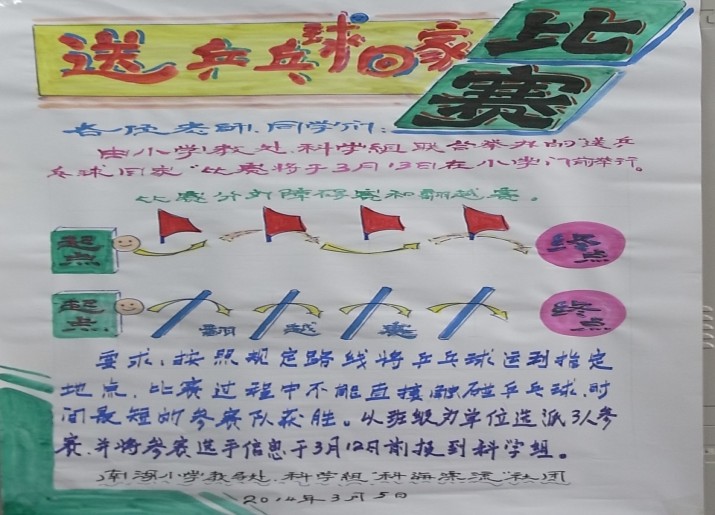 送乒乓球回家比赛
各位老师、同学们:
由小学教处、科学组联合举办的"送乒
乓球回家"比赛将于3月13日在小学门前举行。
比赛分为障碍赛和翻越赛。
起点 终点
起点 终点
翻越赛
要求、按照规定路线将乒乓球运到指定
地点,比赛过程中不能直接触碰乒乓球,时
间最短的参赛队获胜。以班级为单位选派3人参
赛,并将参赛选手信息于3月12日前报到科学组。
南湖小学教务处、科学组"科海"社团
2014年3月5日